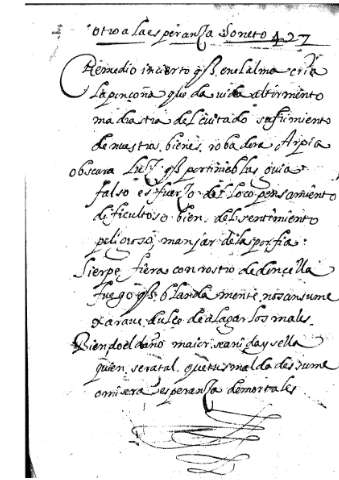 otro a la esperança Soneto 427
Remedio incierto q̃ en el alma cria
la pinçoña que da vida al tirmento
madrastra del cuitado sufrimiento
de nuestros bienes robadora Arpia
obscura Luz q̃ por tinieblas guia
falso esfuerço del loco pensamiento
dificultoso bien del sentimiento
peligroso manjar de la porfia:
Sierpe fiera con rostro de donçella
fuego q̃ blandamente nos consume
xarave dulce de alagar los males
Biendo el daño maior sean y sella
quien sera tal que tus maldades sume
o misera esperança de mortales